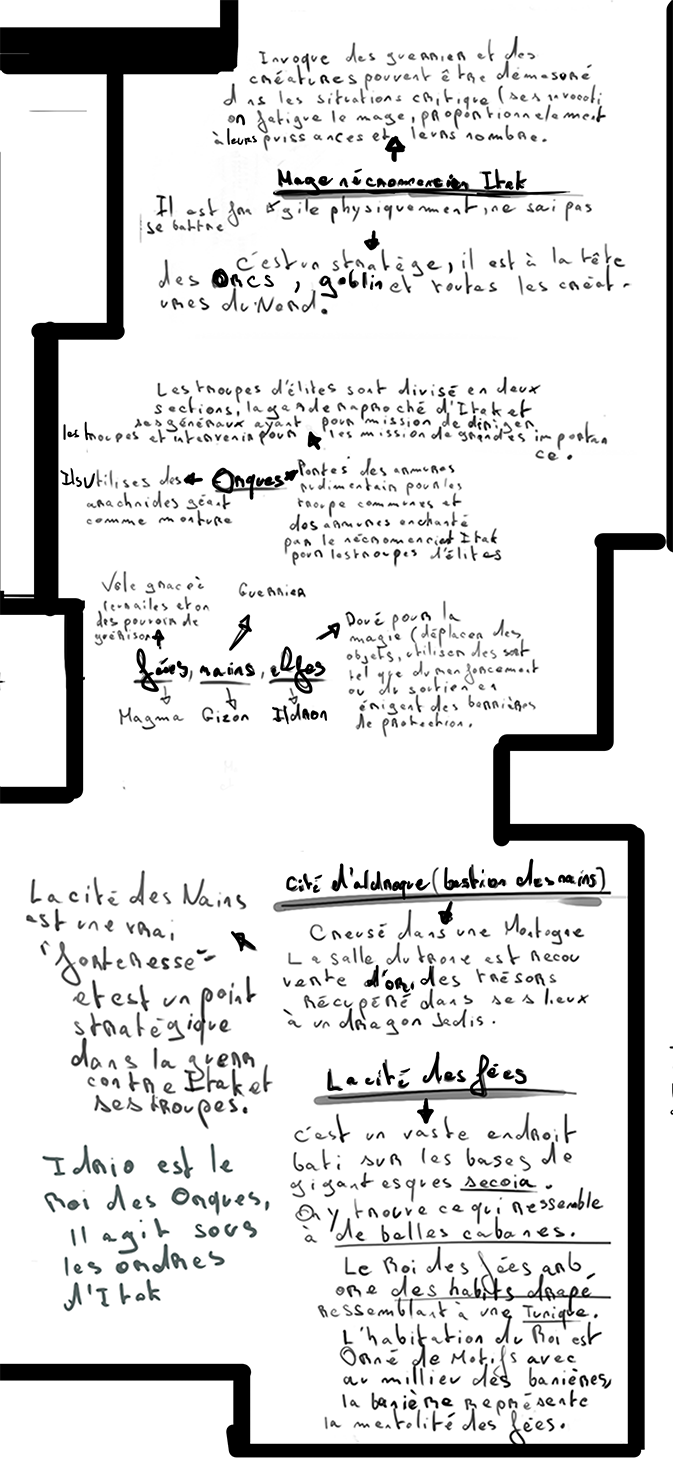 Invoque des guerrier et des
créatures pouvent être démesuré
dans les situations critique (ses invocati
on fatigue le mage, proportionnelement
à leurs puissances et leurs nombre.
Mage nécromencien Itak
Il est fra agile physiquement, ne sai pas
se battre
c'est un stratège, il est à la tête
des Orcs, goblin et toutes les créat-
ures du Nord.
Les troupes d'élites sont divisé en deux
sections, la garde raproché d'Itak et
ses généraux ayant pour mission de diriger
les troupes et intervenir pour les mission de grandes importan
ce.
Ils Utilises des
arachnides géant
comme monture
Orques
Portes des armures
rudimentain pour les
troupe communes et
des armures enchanté
par le nécromencien Itak
pour les troupes d'élites
Vole grace à
leurs ailes et on
des pouvoir de
guérison
Guerrier
Doué pour la
magie (déplacer des
objets, utiliser des sort
tel que du renforcement
ou du soutien en
érigent des barrières
de protection.
fées, nains, elfes
Magma Gizon Ildron
Cité d'aldraque (bastion des nains)
Creusé dans une Montagne
La salle du trone est recou
verte d'or, des trésors
récupéré dans ses lieux
à un dragon jadis.
La cité des Nains
est une vrai
"forteresse"
et est un point
stratégique
dans la guerr
contre Itak et
ses troupes.
La cité des fées
c'est un vaste endroit
bati sur les bases de
gigantesques secoia.
On y trouve ce qui ressemble
à de belles cabanes.
Le Roi des fées arb
ore des habits drapé
ressemblant à une Tunique.
L'habitation du Roi est
Orné de Motifs avec
au millieu des banières,
la banière représente
la mentalité des fées.
Idrio est le
roi des Orques,
Il agit sous
les ordres
d'Itak